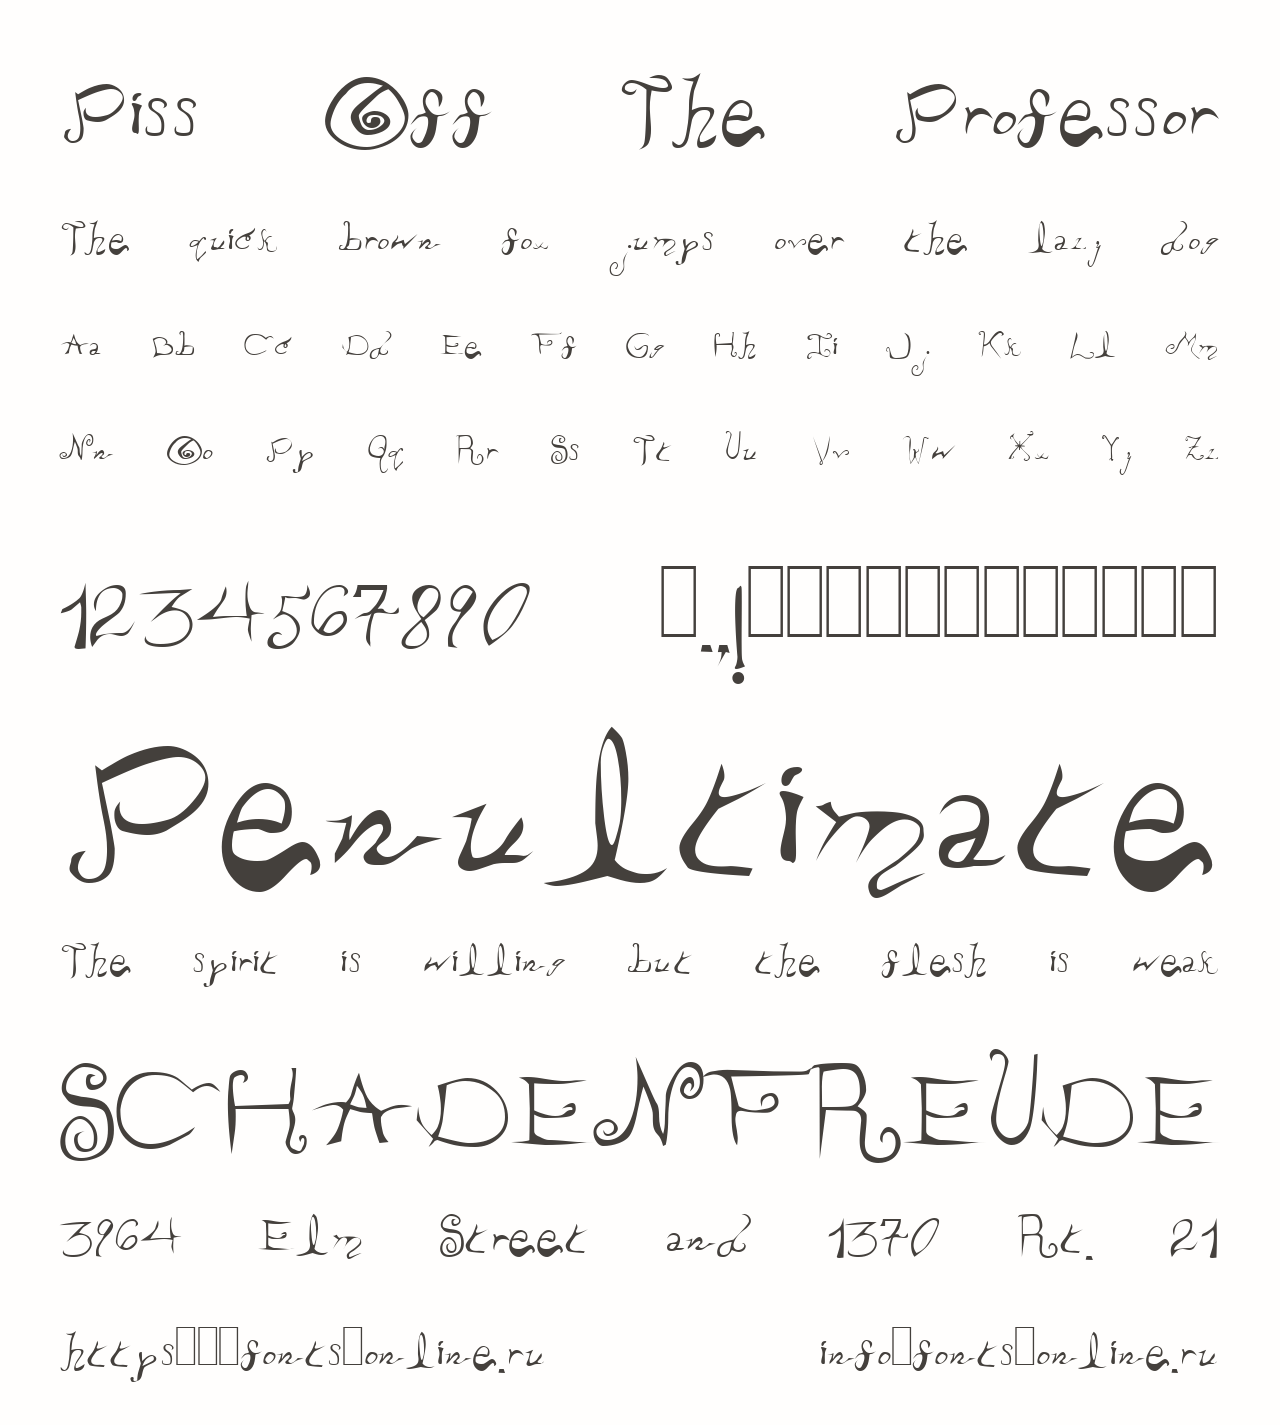 Piss Off The Professor
The quick brown fox jumps over the lazy dog
Aa Bb Cc Dd Ee Ff Gg Hh Ii Jj Kk Ll Mm
Nn Oo Pp Qq Rr Ss Tt Uu Vv Ww Xx Yy Zz
1234567890 □.,!□□□□□□□□□□□□
Penultimate
The spirit is willing but the flesh is weak
SCHADENFREUDE
3964 Elm Street and 1370 Rt. 21
https□□□fonts□online.ru info□fonts□online.ru